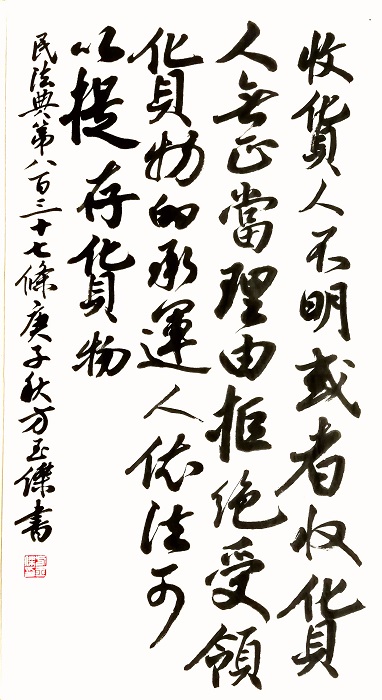 收貨人不明或者收貨
人無正當理由拒絕受領
貨物的承運人依法可
以提存貨物
民法典第八百三十七條庚子秋方玉傑書